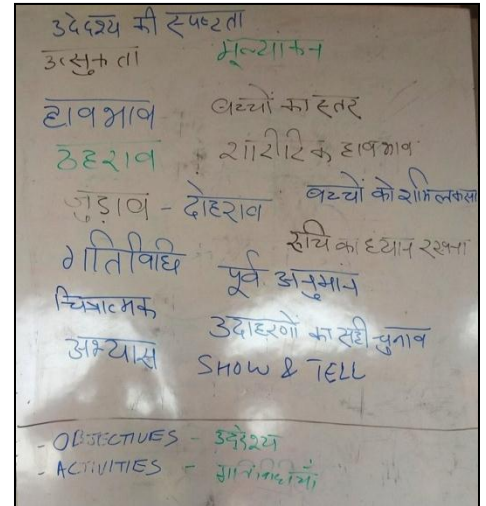 उददेश्य की स्पष्टता
उत्सुकता मूल्यांकन
हावभाव बच्चों का स्तर
ठहराव शारीरिक हावभाव
जुड़ाव - दोहराव बच्चों को शामिल करना
रूचि का ध्यान रखना
गतिविधि पूर्व अनुमान
चित्रात्मक
उदाहरणों का सही चुनाव
अभ्यास SHOW & TELL
- OBJECTIVES - उददेश्य
- ACTIVITIES - गतिविधियाँ